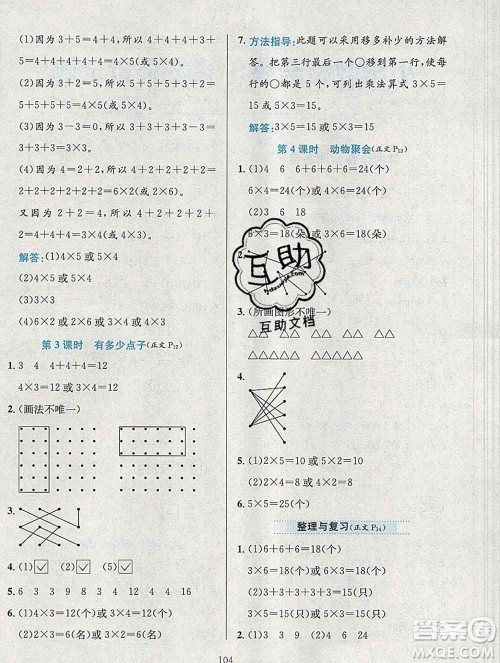 (1)因为 3+5=4+4,所以 3+4+4+3+
5=4+4+4+4+4=4×5(或 5×4)。
(2)因为 4+6=5+5,所以 4+5+5+
6=5+5+5+5=4×5(或 5×4)。
(3)因为 3-3=0,所以 3+3+3+3-
3=3+3+3=3×3。
(4)因为 2+2=4,所以 2+2+4+2+
2=4+4+4=4×3(或 3×4)。
又因为 2+2=4,所以 2+2+4+2+
2=2+2+2+2+2+2=6×2(或 2×6)。
解答:(1)4×5 或 5×4
(2)4×5 或 5×4
(3)3×3
(4)6×2 或 2×6 或 4×3 或 3×4
第 3 课时 有多少点子(正文 P12)
1. 3 4 4+4+4
4×3=12 或 3×4=12
2. (画法不唯一)
3.
4. (1)✓ (2)✓
5. 3 3 3 9 4 2 4 8
6. (1)4×3=12(个)或 3×4=12(个)
(2)3×2=6(名)或 2×3=6(名)
7. 方法指导:此题可以采用移多补少的方法解
答。把第三行最后一个○移到第一行,使
每一行的○个数相等,可列出乘法算式 3×5=
15 或 5×3=15。
解答:3×5=15 或 5×3=15
第 4 课时 动物聚会(正文 P13)
1. (1)4 6 6+6+6+6=24(个)
6×4=24(个)或 4×6=24(个)
(2)3 6 18
6×3=18(朵)或 3×6=18(朵)
2.
3. (所画图形不唯一)
△△ △△ △△ △△
△△△△△ △△△△△
4.
5. (1)2×5=10 或 5×2=10
(2)4×2=8 或 2×4=8
6. 5×5=25(个)
整理与复习(正文 P14)
1. (1)6+6+6=18(个)
6×3=18(个)或 3×6=18(个)
(2)3+3+3+3+3=15(个)
3×5=15(个)或 5×3=15(个)
104
互助
互助文档
答案圈
MXQE.COM